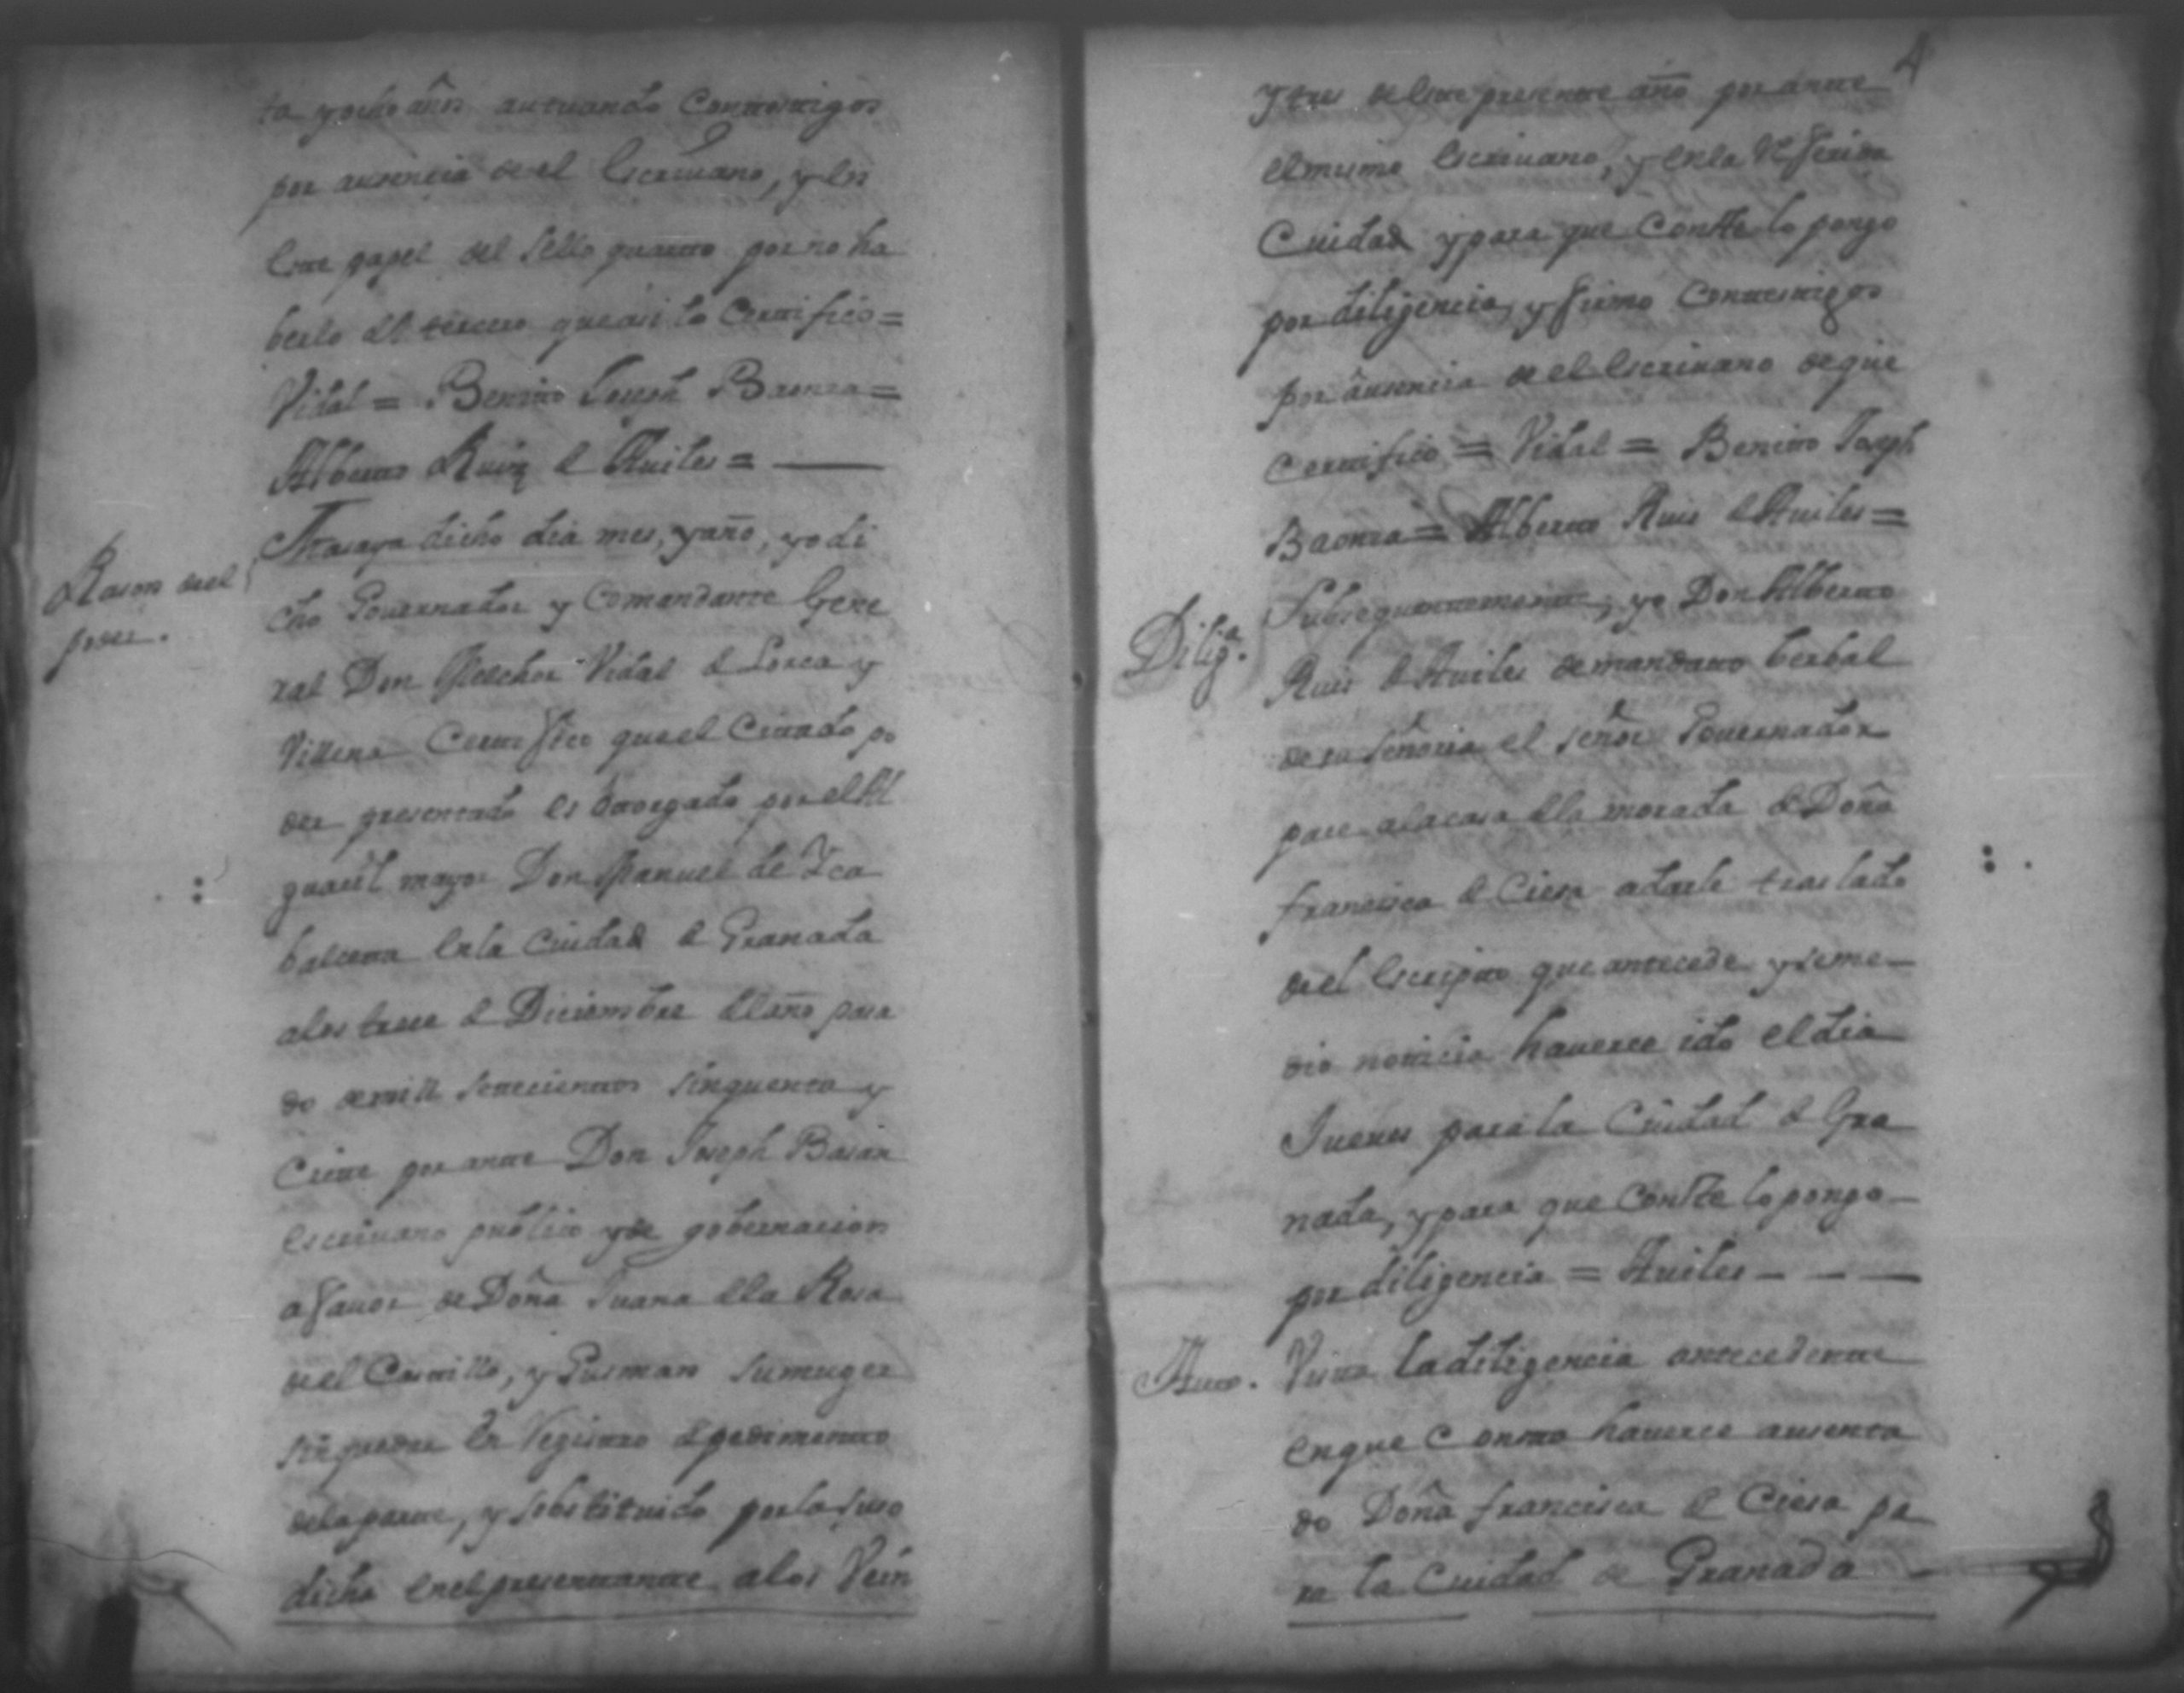 ta y ocho años actuando con testigos
por ausencia de el Escriuano, y en
este papel del Sello quarto por no ha
berlo del tercero que asi lo Certifico =
Vidal = Benito Joseph Baonza =
Alberto Ruiz de Auiles =
Rason del
poder.
Masaya dicho dia mes, y año, yo di
cho Gouernador y Comandante Gene
ral Don Melchor Vidal de Lorca y
Villena Certifico que el Citado po
der presentado es otorgado por el Al
guacil mayor Don Manuel de Yca
balceta en la Ciudad de Granada
a los trece de Diciembre del año pasa
do de mill setecientos sinquenta y
Ciete por ante Don Joseph Basan
escriuano publico y de gobernacion
a fauor de Doña Juana de la Rosa
de el Castillo, y Gusman su muger
sin quedar en registro de pedimento
de la parte, y sobstituido por la suso
dicha en el presentante a los Vein
4
y tres de este presente año por ante
el mismo Escriuano, y en la referida
Cuidad y para que Conste lo pongo
por diligencia, y firmo Con testigos
por ausencia de el Escriuano de que
certifico = Vidal = Benito Joseph
Baonza = Alberto Ruis de Auiles =
Dilig.ª
Subsequentemente, yo Don Alberto
Ruis de Auiles de mandato berbal
de su señoria el señor Gouernador
pace a la casa de la morada de Doña
francisca de Ciesa a darle traslado
de el Escripto que antecede y se me
dio noticia hauerce ido el dia
Jueues para la Ciudad de Gra
nada, y para que Conste lo pongo
por diligencia = Auiles - - -
Auto.
Vista la diligencia antecedente
en que Consta hauerce ausenta
do Doña francisca de Ciesa pa
ra la Cuidad de Granada